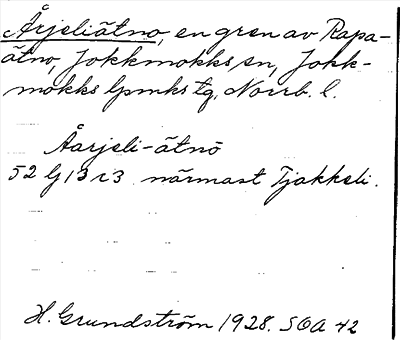 Årjeliätno, en gren av Rapa-
ätno, Jokkmokks sn, Jokk-
mokks lpmks tg, Norrb. l.
Åarjeli-ätnō
52 G i3 närmast Tjakkeli.
H. Grundström 1928. SOA 42